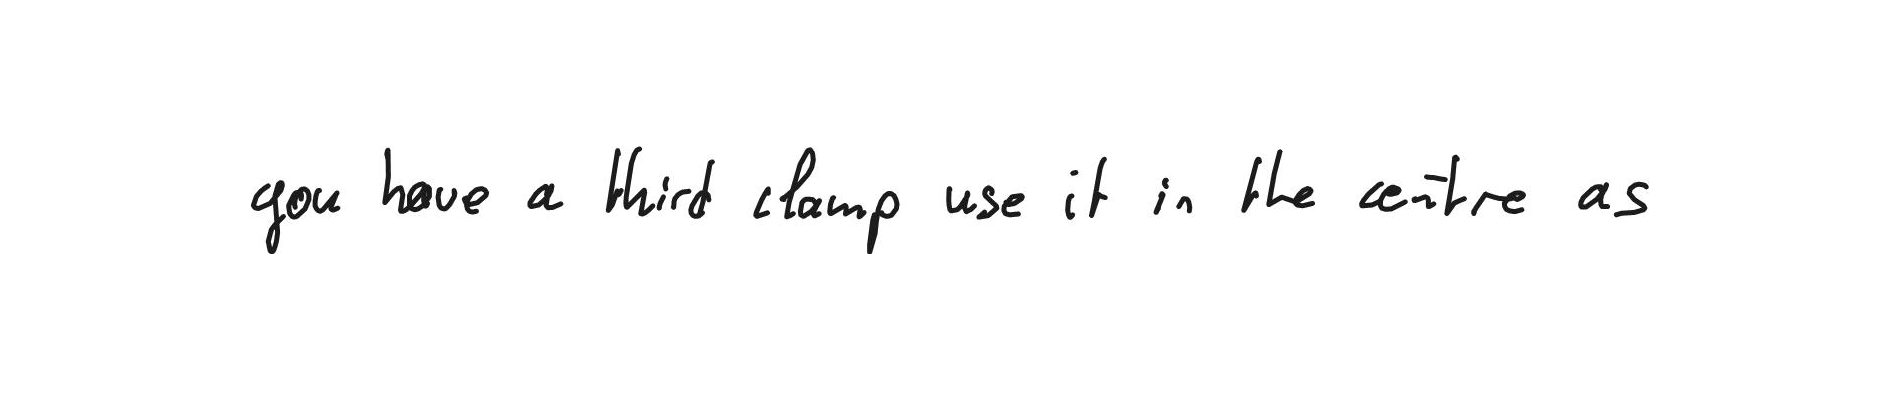 you have a third clamp use it in the centre as